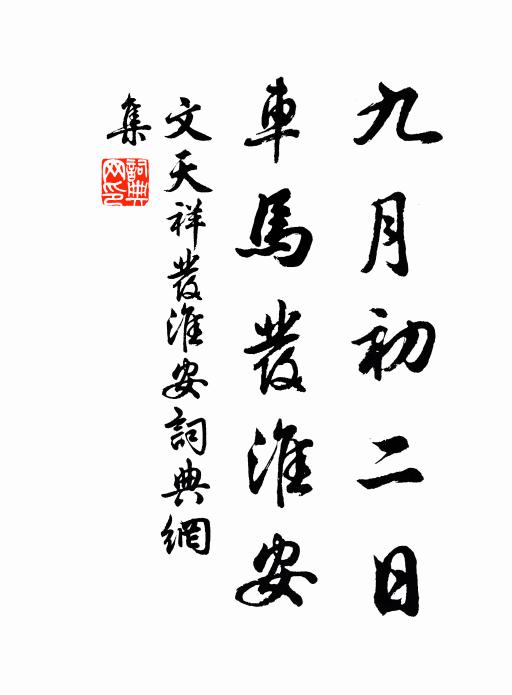 九月初二日
車馬發淮安
文天祥發淮安詞典網
集
詞典
网印